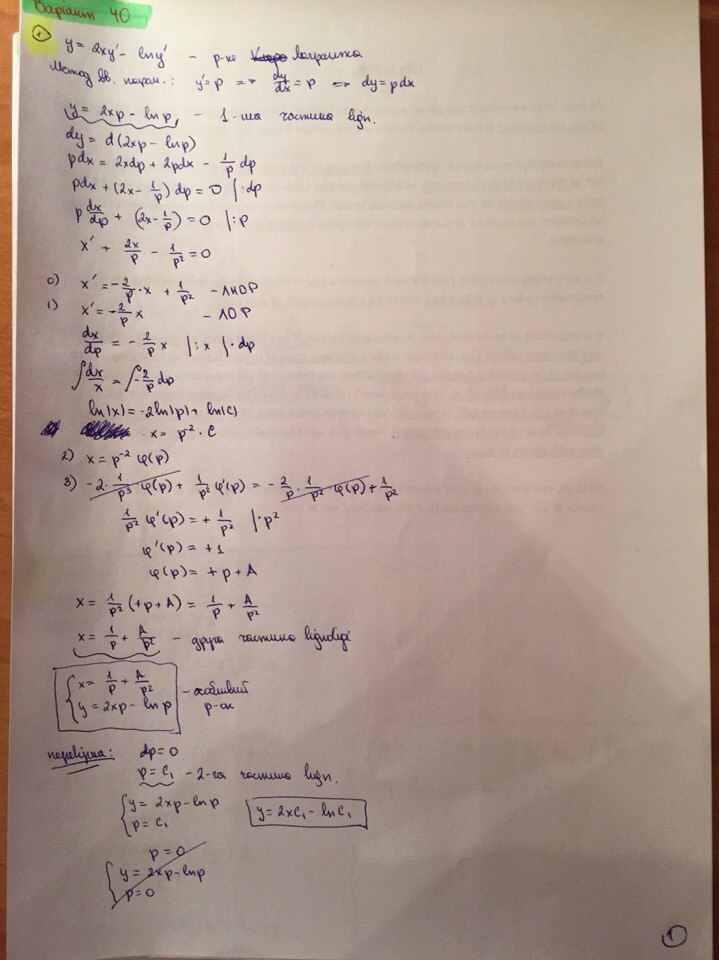 Варіант 40
1 y = 2xy' - ln y' - р-ня Лагранжа
Метод вв. парам.: y' = p => dy/dx = p => dy = pdx
y = 2xp - ln p - 1-ша частина відп.
dy = d(2xp - ln p)
pdx = 2xdp + 2pdx - 1/p dp
pdx + (2x - 1/p) dp = 0 |:dp
p dx/dp + (2x - 1/p) = 0 |:p
x' + 2x/p - 1/p² = 0
0) x' = -2/p · x + 1/p² - ЛНОР
1) x' = -2/p x - ЛОР
dx/dp = -2/p x |:x |·dp
∫dx/x = ∫-2/p dp
ln|x| = -2ln|p| + ln|C|
x = p⁻² · C
2) x = p⁻² φ(p)
3) -2 · 1/p³ φ(p) + 1/p² φ'(p) = -2/p · 1/p² φ(p) + 1/p²
1/p² φ'(p) = + 1/p² |·p²
φ'(p) = +1
φ(p) = +p + A
x = 1/p² (+p + A) = 1/p + A/p²
x = 1/p + A/p² - друга частина відповіді
{ x = 1/p + A/p² - особливий
y = 2xp - ln p р-ок
перевірка: dp = 0
p = C₁ - 2-га частина відп.
{ y = 2xp - ln p
p = C₁ y = 2xC₁ - ln C₁
p = 0
{ y = 2xp - ln p
p = 0
1